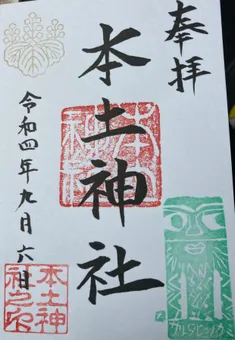 奉拝
本土神社
令和四年九月六日
本土神
社之印